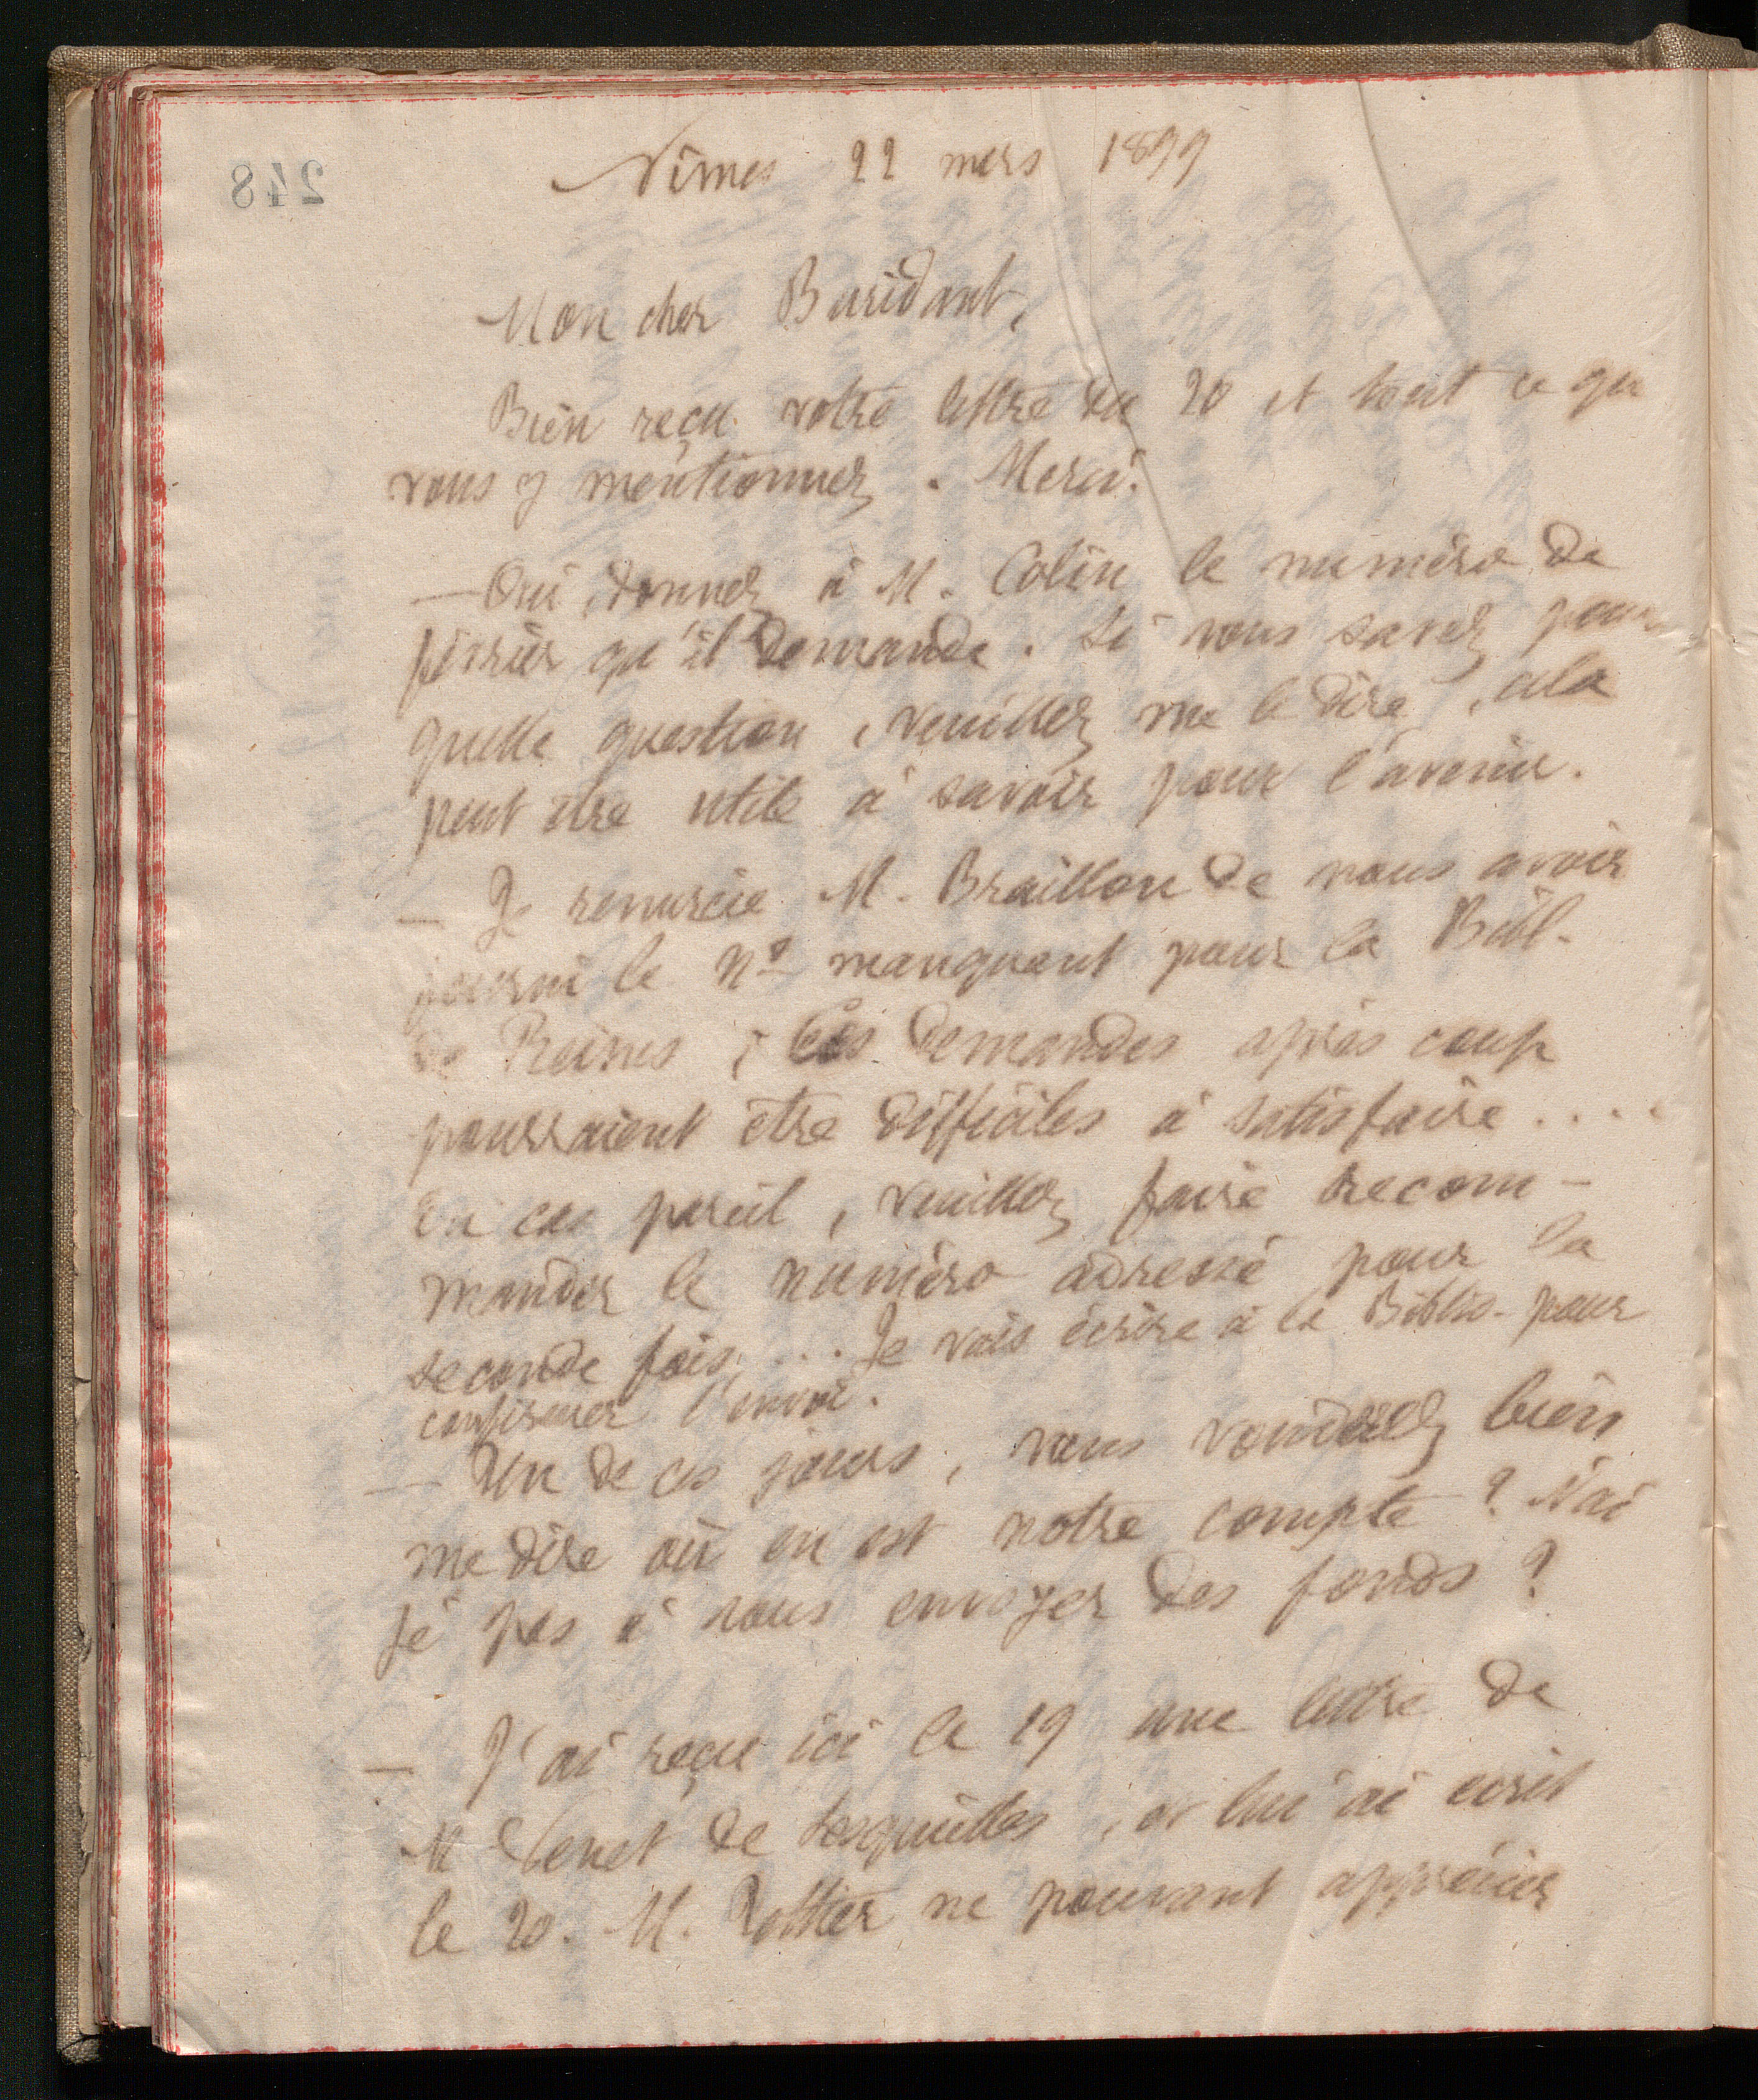 248
Nîmes 22 mars 1899
Mon cher Buridant,
Bien reçu votre lettre du 20 et tout ce que
vous y mentionnez. Merci.
— Oui, donnez à M. Colin le numéro de
février qu'il demande. Si vous savez pour
quelle question, veuillez me le dire, cela
peut être utile à savoir pour l'avenir.
— Je remercie M. Braillon de vous avoir
fourni le Nº manquant pour la Bibl.
de Reims; Ces demandes après coup
pourraient être difficiles à satisfaire....
En cas pareil, veuillez faire recom-
mander le numéro adressé pour la
seconde fois... Je vais écrire à la Biblio. pour
confirmer l'envoi.
— Un de ces jours, vous voudrez bien
me dire où en est notre compte? N'ai
je pas à vous envoyer des fonds?
— J'ai reçu ici le 19 une lettre de
M de Lesquielles, et lui ai écrit
le 20. M. ne pouvant apprécier